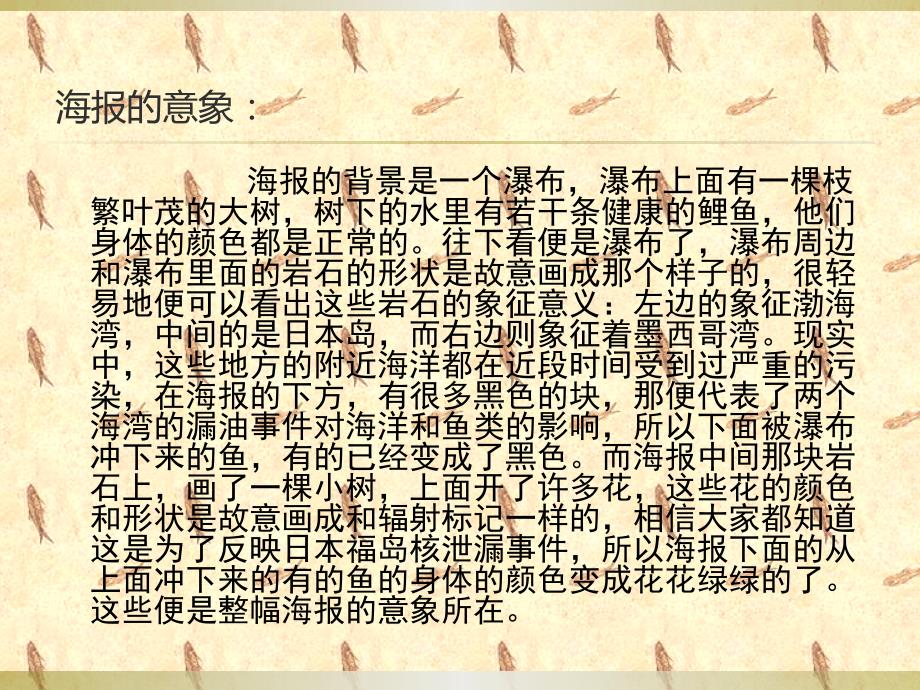 海报的意象：
海报的背景是一个瀑布，瀑布上面有一棵枝
繁叶茂的大树，树下的水里有若干条健康的鲤鱼，他们
身体的颜色都是正常的。往下看便是瀑布了，瀑布周边
和瀑布里面的岩石的形状是故意画成那个样子的，很轻
易地便可以看出这些岩石的象征意义：左边的象征渤海
湾，中间的是日本岛，而右边则象征着墨西哥湾。现实
中，这些地方的附近海洋都在近段时间受到过严重的污
染，在海报的下方，有很多黑色的块，那便代表了两个
海湾的漏油事件对海洋和鱼类的影响，所以下面被瀑布
冲下来的鱼，有的已经变成了黑色。而海报中间那块岩
石上，画了一棵小树，上面开了许多花，这些花的颜色
和形状是故意画成和辐射标记一样的，相信大家都知道
这是为了反映日本福岛核泄漏事件，所以海报下面的从
上面冲下来的有的鱼的身体的颜色变成花花绿绿的了。
这些便是整幅海报的意象所在。